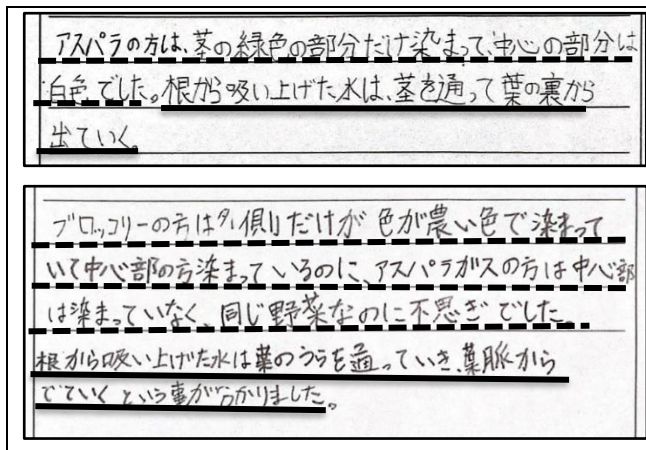 アスパラの方は、茎の緑色の部分だけ染まって、中心の部分は
白色でした。根から吸い上げた水は、茎を通って葉の裏から
出ていく。
ブロッコリーの方は外側だけが色が濃い色で染まって
いて中心部の方染まっているのに、アスパラガスの方は中心部
は染まっていなく、同じ野菜なのに不思ぎでした。
根から吸い上げた水は葉のうらを通っていき、葉脈から
でていくという事が分かりました。